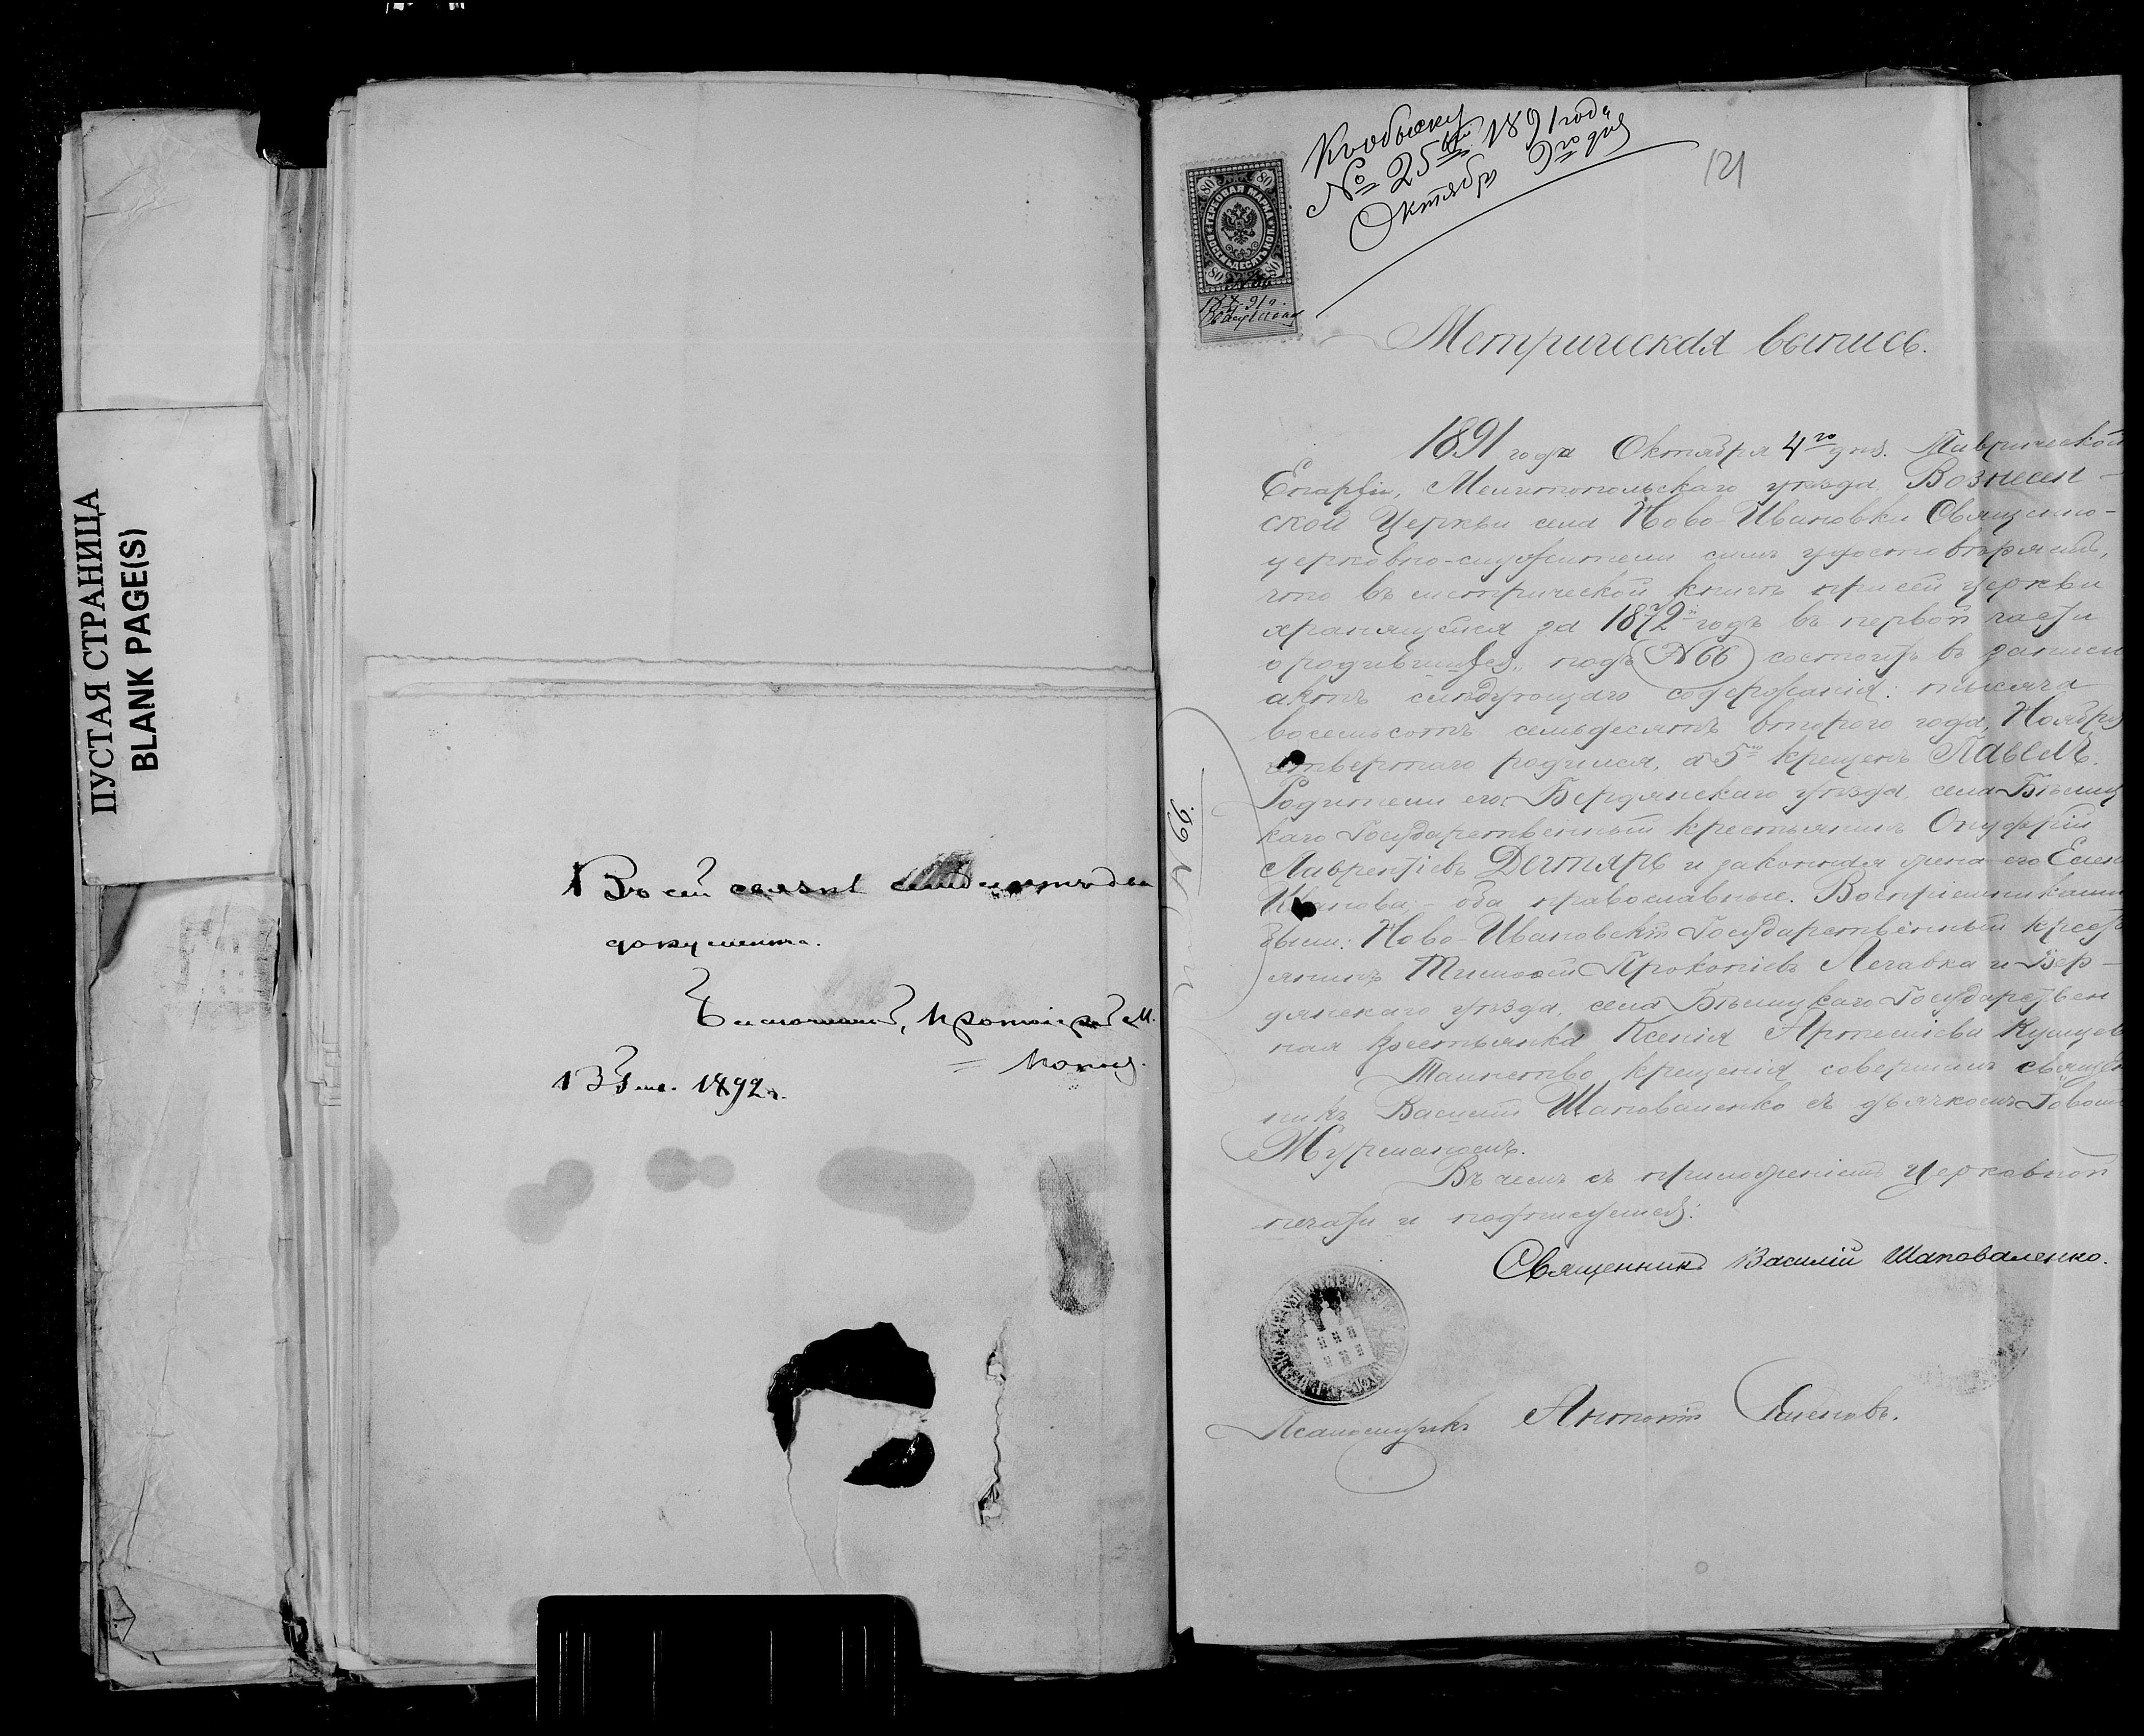 ПУСТАЯ СТРАНИЦА
BLANK PAGE(S)
Въ сей связкѣ семьдесятъ два
документа.
Благочинный, Протоіерей М.
13 1892 г.
Къ обыску
№ 25 1891 года
Октября 9го дня
121
80 80
ГЕРБОВАЯ МАРКА ВОСЕМЬДЕСЯТЪ КОП.
80 80
Метрическая выпись.
1891 года Октября 4го дня. Таврической
Епархіи, Мелитопольскаго уѣзда, Вознесен-
ской Церкви села Ново-Ивановки Священно-
церковно-служители симъ удостовѣряемъ,
что въ метрической книгѣ при сей церкви
хранящейся за 1872й годъ въ первой части
о родившихся, подъ № 66 состоитъ въ записи
актъ слѣдующаго содержанія: тысяча
восемьсотъ семьдесятъ второго года, Ноября
четвертаго родился, а 5го крещенъ Павелъ.
Родители его: Бердянскаго уѣзда, села Бѣлиц
каго Государственный крестьянинъ Онуфрій
Лаврентіевъ Дегтярь и законная жена его Елена
Иванова, - оба православные. Воспріемниками
были: Ново-Ивановскій Государственный крест
янинъ Тимофей Прокопіевъ Легавка и Бер-
дянскаго уѣзда, села Бѣлицкаго Государствен
ная крестьянка Ксенія Артеміева
Таинство крещенія совершилъ священ
никъ Василій Шаповаленко съ дьячкомъ
Журманомъ.
Въ чемъ съ приложеніемъ церковной
печати и подписуемся:
Священникъ Василій Шаповаленко.
Псаломщикъ Антоній Семеновъ.